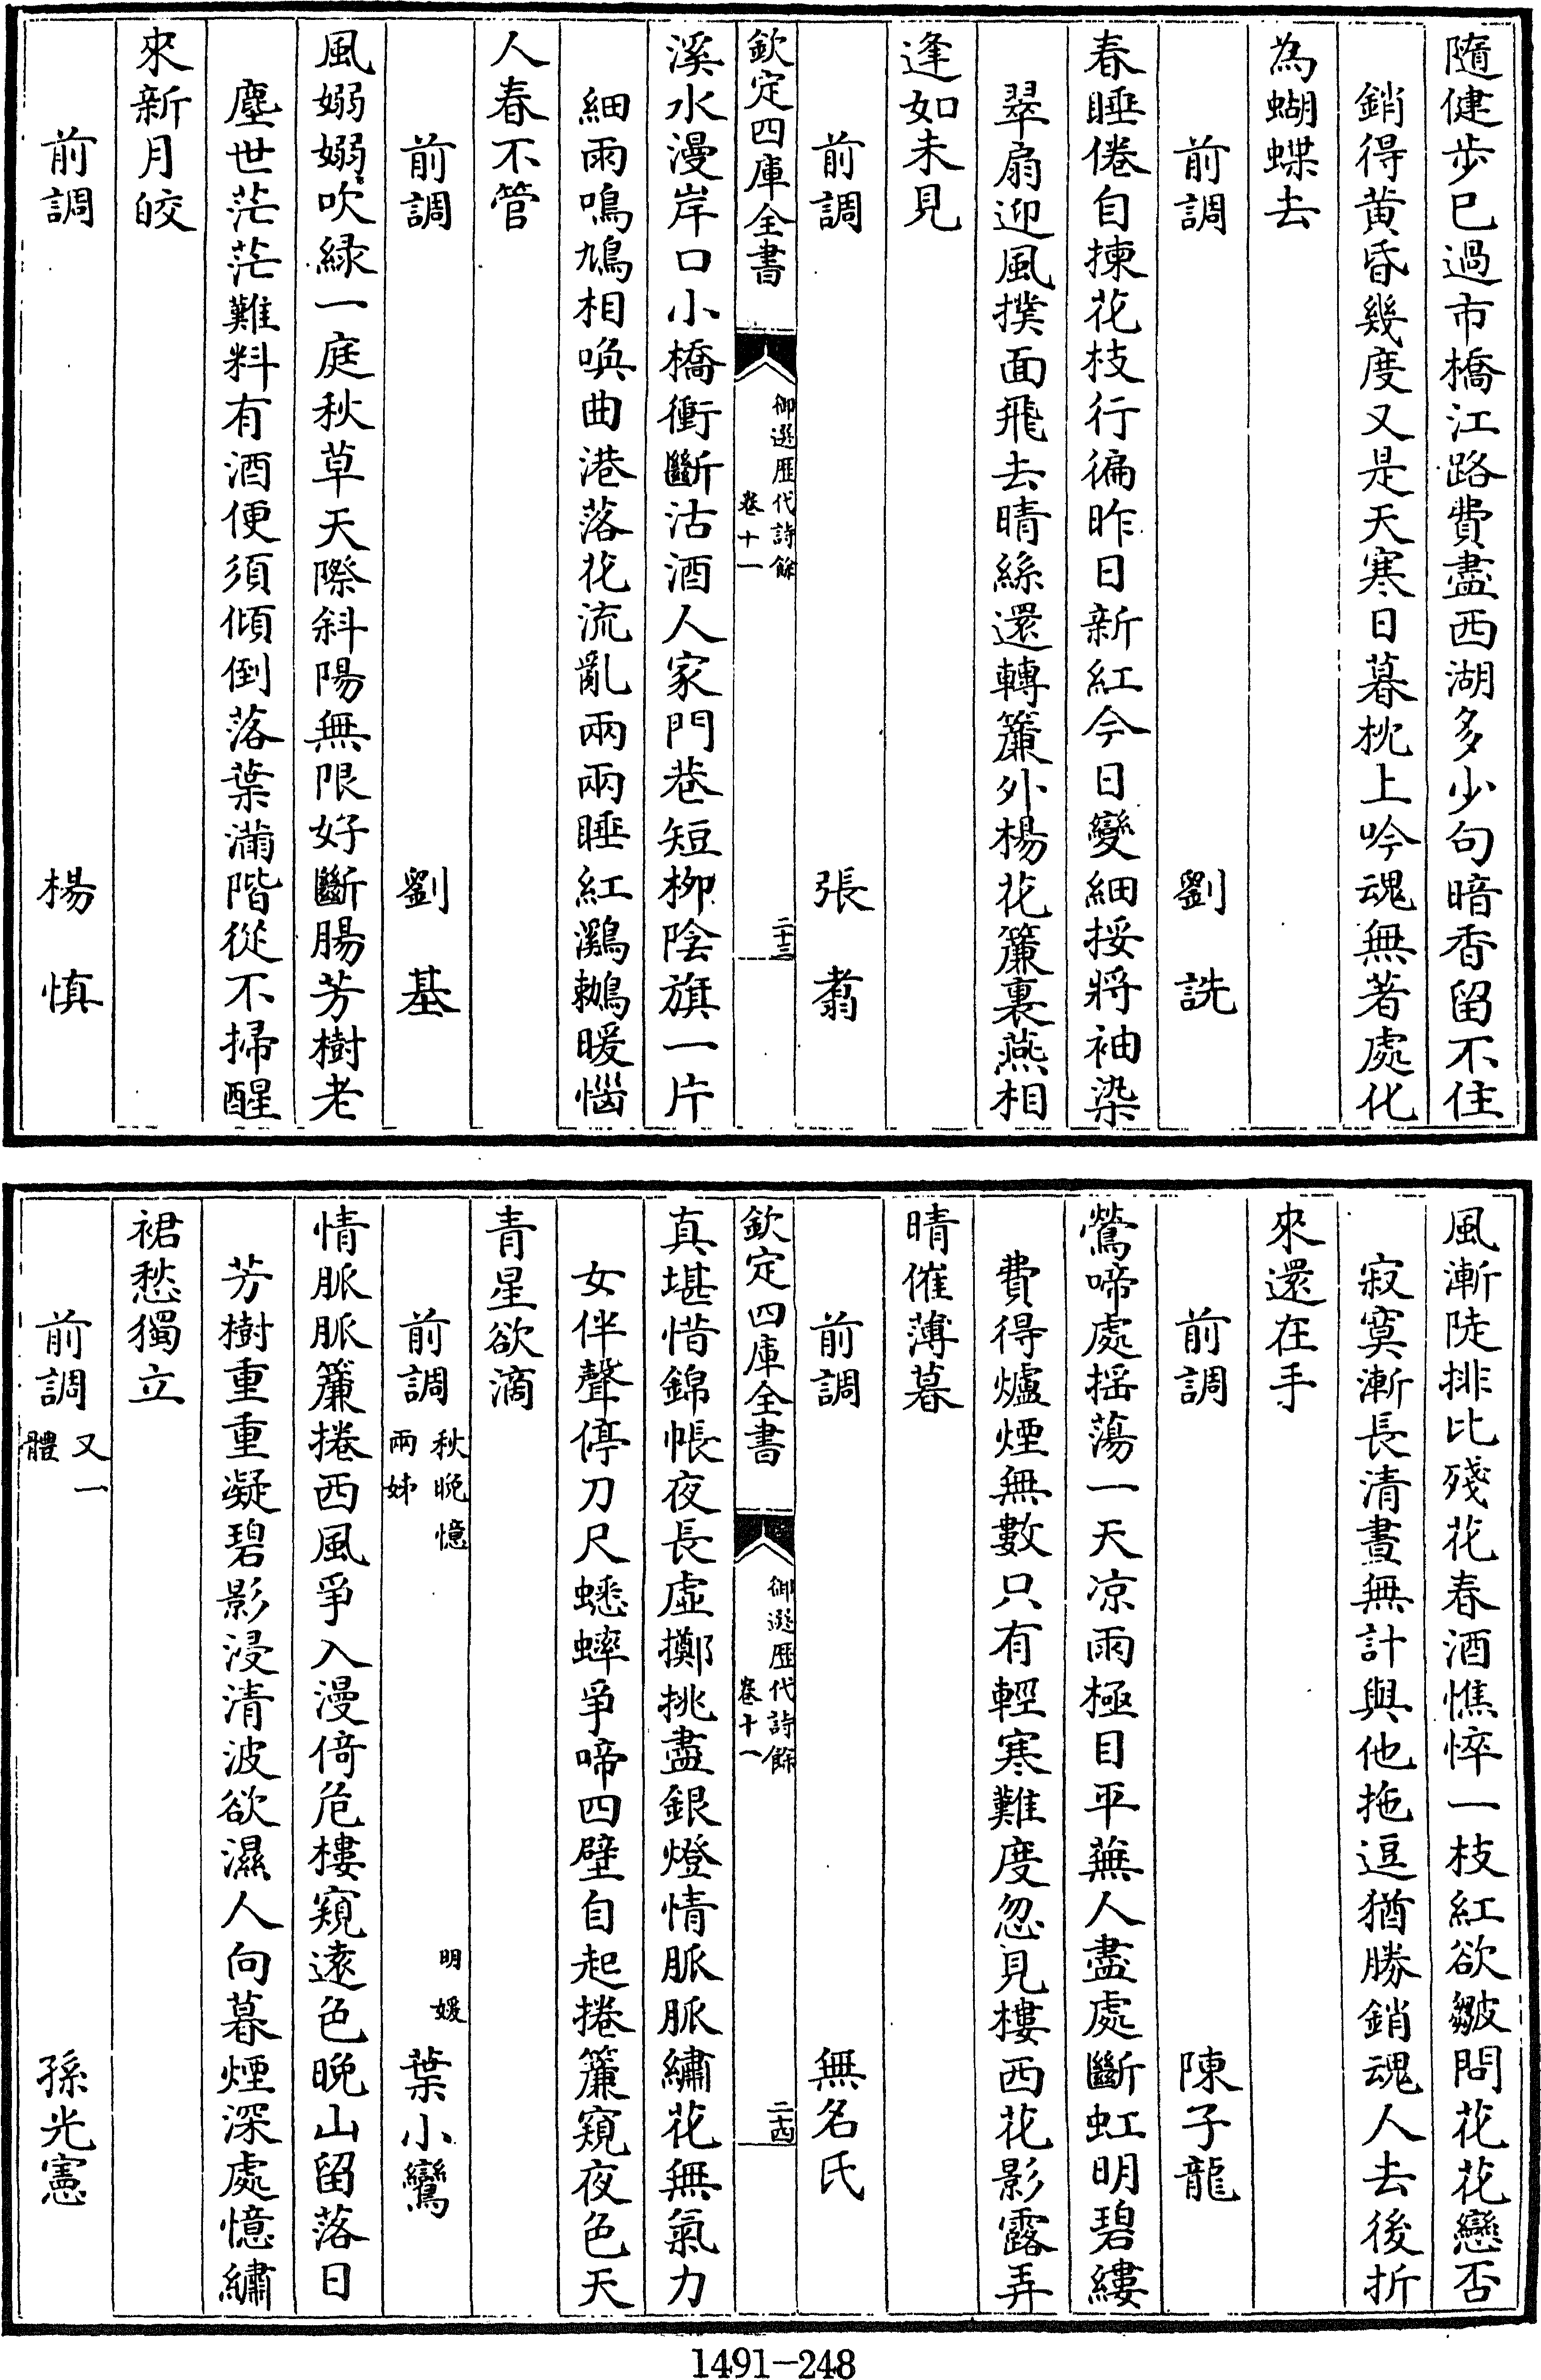 隨健步已過市橋江路費盡西湖多少句暗香留不住
銷得黄昏幾度又是天寒日暮枕上吟魂無著處化
為蝴蝶去
前調 劉詵
春睡倦自揀花枝行徧昨日新紅今日變細挼將袖染
翠扇迎風撲面飛去晴絲還轉簾外楊花簾裏燕相
逢如未見
前調 張翥
欽定四庫全書 御選歴代詩餘 卷十一 二十三
溪水漫岸口小橋衝斷沽酒人家門巷短柳陰旗一片
細雨鳴鳩相喚曲港落花流亂兩兩睡紅鸂鶒暖惱
人春不管
前調 劉基
風嫋嫋吹緑一庭秋草天際斜陽無限好斷腸芳樹老
塵世茫茫難料有酒便須傾倒落葉滿階從不掃醒
來新月皎
前調 楊慎
風漸陡排比殘花春酒憔悴一枝紅欲皺問花花戀否
寂寞漸長清晝無計與他拖逗猶勝銷魂人去後折
來還在手
前調 陳子龍
鶯啼處摇蕩一天凉雨極目平蕪人盡處斷虹明碧縷
費得爐煙無數只有輕寒難度忽見樓西花影露弄
晴催薄暮
前調 無名氏
欽定四庫全書 御選歴代詩餘 卷十一 二十四
真堪惜錦帳夜長虚擲挑盡銀燈情脈脈繡花無氣力
女伴聲停刀尺蟋蟀爭啼四壁自起捲簾窺夜色天
青星欲滴
前調 秋晩憶兩姊 明媛 葉小鸞
情脈脈簾捲西風爭入漫倚危樓窺遠色晩山留落日
芳樹重重凝碧影浸清波欲濕人向暮煙深處憶繡
裙愁獨立
前調 又一體 孫光憲
1491-248